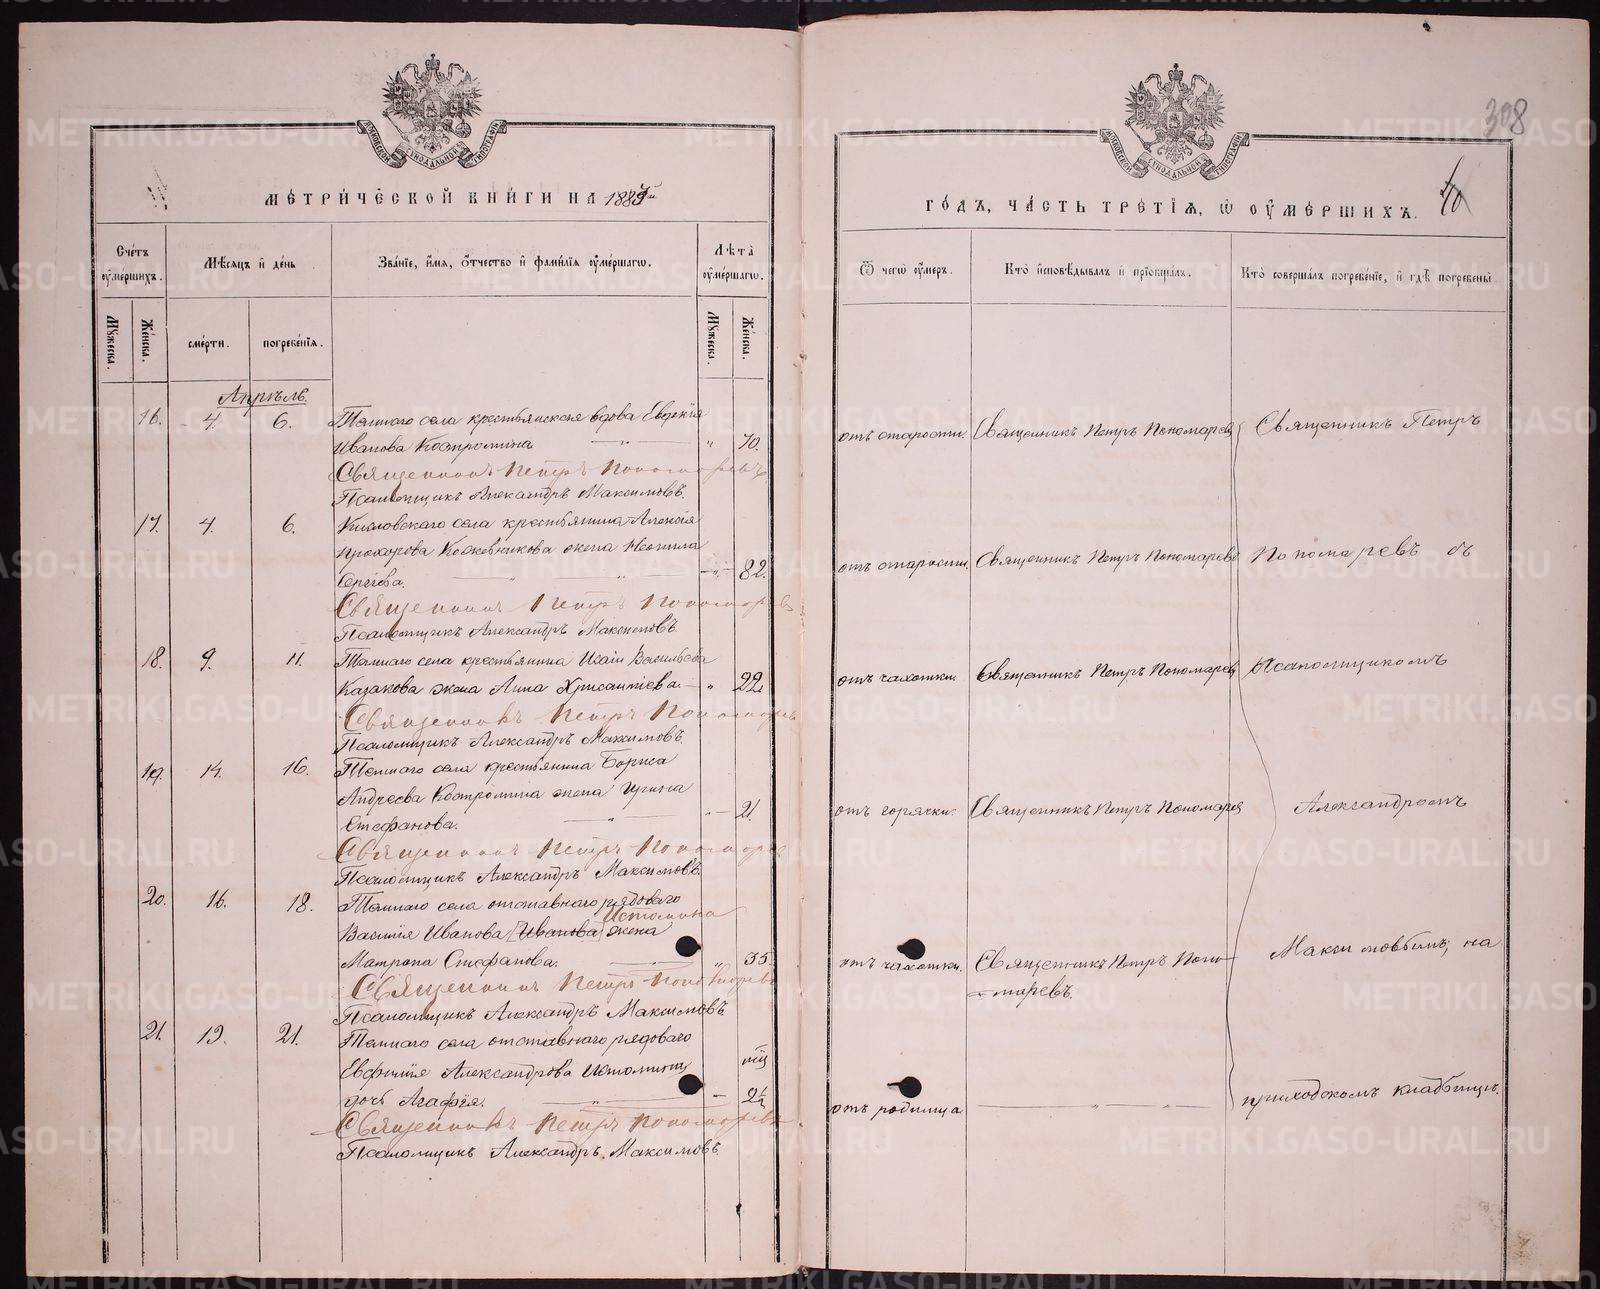 МЕТРИЧЕСКОЙ КНИГИ НА 188
Счетъ оумершихъ.
Мѣсяцъ и день
Званіе, имя, отчество и фамилія оумершагѡ.
Лѣта оумершагѡ.
Мужеска.
Женска.
смерти.
погребенія.
Мужеска.
Женска.
Апрѣль.
16. 4 6. Темнаго села крестьянская вдова Евдокія
Ивановна Костромина " 70.
Священникъ Петръ Пономаревъ
Псаломщикъ Александръ Максимовъ.
17. 4. 6. села крестьянина Алексія
Прохорова Кожевникова жена Неонила
Сергіева. " 82.
Священникъ Петръ Пономаревъ
Псаломщикъ Александръ Максимовъ.
18. 9. 11. села крестьянина Исаіи Васильева
Казакова жена Анна Хрисантіева. " 22
Священникъ Петръ Пономаревъ
Псаломщикъ Александръ Максимовъ.
19. 14. 16. села крестьянина Бориса
Андреева Костромина жена Ирина
Стефанова. " 21.
Священникъ Петръ Пономаревъ
Псаломщикъ Александръ Максимовъ.
20. 16. 18. села отставнаго рядоваго
Истомина
Василія Иванова [Иванова] жена
Матрона Стефанова. " 35
Священникъ Петръ Пономаревъ
Псаломщикъ Александръ Максимовъ
21. 19. 21. села отставнаго рядоваго
Евфимія Александрова Истомина
дочь Агафія. 2½
Священникъ Петръ Пономаревъ
Псаломщикъ Александръ Максимовъ.
308
ГОДЪ, ЧАСТЬ ТРЕТІЯ, Ѡ ОУМЕРШИХЪ.
40
Ѿ чегѡ оумеръ.
Кто исповѣдывалъ и пріобщалъ.
Кто совершалъ погребеніе, и гдѣ погребены
отъ старости. Священникъ Петръ Пономаревъ Священникъ Петръ
отъ старости. Священникъ Петръ Пономаревъ Пономаревъ съ
отъ чахотки. Священникъ Петръ Пономаревъ Псаломщикомъ
отъ горячки. Священникъ Петръ Пономаревъ Александромъ
отъ чахотки. Священникъ Петръ Поно-
маревъ. Максимовымъ, на
отъ родимца приходскомъ кладбищѣ.
METRIKI.GASO-URAL.RU